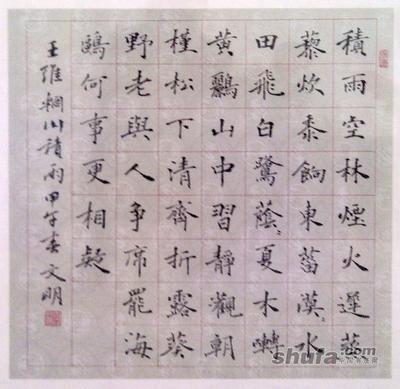 積雨空林煙火遲蒸
藜炊黍餉東菑漠〻水
田飛白鷺蔭〻夏木囀
黄鸝山中習靜觀朝
槿松下清齋折露葵
野老與人爭席罷海
鷗何事更相疑
王維輞川積雨甲午春文明
shufa.com